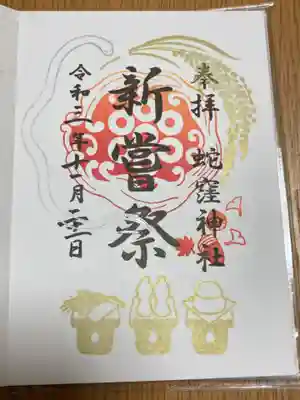 奉拝 蛇窪神社
新嘗祭
令和三年十一月二十三日